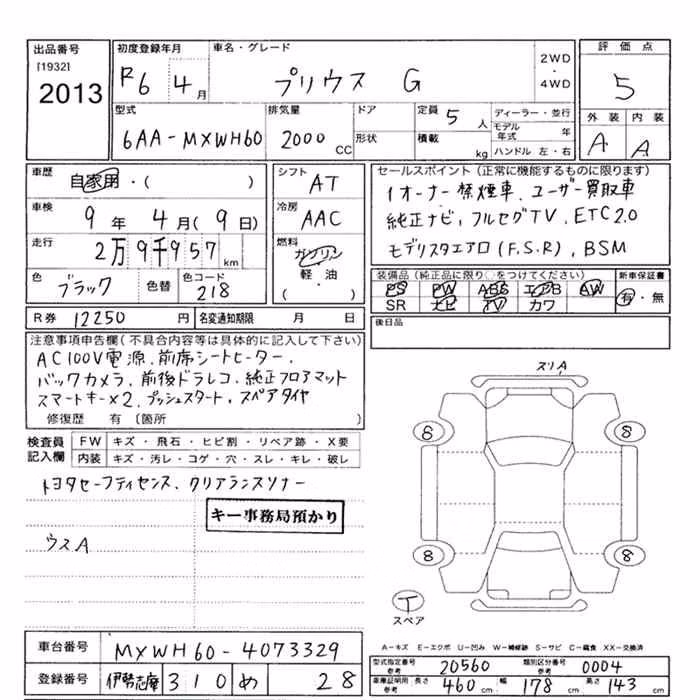 出品番号 初度登録年月 車名・グレード 評価点
[1932] 2013 R6 4月 プリウス G 2WD・4WD 5
型式 排気量 ドア 定員 5人 ディーラー・並行 外装 内装
6AA-MXWH60 2000CC 形状 積載 kg モデル年式 年 A A
ハンドル 左・右
車歴 自家用・( ) シフト AT セールスポイント(正常に機能するものに限ります)
車検 9年 4月(9日) 冷房 AAC 1オーナー 禁煙車、ユーザー買取車
走行 2万9千957km 燃料 ガソリン 純正ナビ、フルセグTV、ETC2.0
軽油 モデリスタエアロ(F,S,R)、BSM
( )
色 ブラック 色替 色コード 218 装備品(純正品に限り○をつけてください) 新車保証書
PS PW ABS エアB AW 有・無
SR ナビ TV カワ
R券 12250円 名変通知期限 月 日 後日品
注意事項申告欄(不具合内容等は具体的に記入して下さい)
AC100V電源、前席シートヒーター、
バックカメラ、前後ドラレコ、純正フロアマット
スマートキー×2、プッシュスタート、スペアタイヤ
修復歴 有 〔箇所
スリA
検査員記入欄 FW キズ・飛石・ヒビ割・リペア跡・X要
内装 キズ・汚レ・コゲ・穴・スレ・キレ・破レ
8 8
トヨタセーフティセンス、クリアランスソナー
キー事務局預かり
ウスA
8 8
T
スペア
A-キズ E-エクボ U-凹み W-補修跡 S-サビ C-腐食 XX-交換済
車台番号 MXWH60-4073329
型式指定番号 参考 20560 類別区分番号 参考 0004
登録番号 伊勢志摩 310 め 28
車庫証明用 参考 長さ 460cm 幅 178cm 高さ 143cm